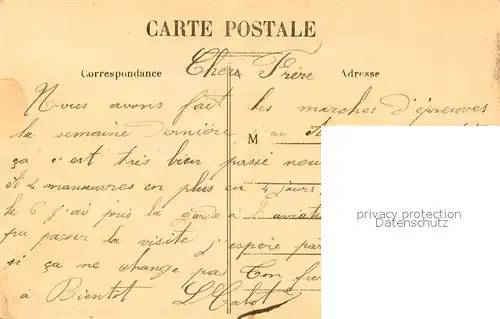 CARTE POSTALE
Correspondance Cher Frère Adresse
Nous avons fait les marches d'épreuves
la semaine dernière, j'ai
M
ça c'est très bien passé nou
et 2 manœuvres en plus en 4 jours,
le 6 j'ai pris la garde à l'aviat
pu passer la visite j'espère par
si ça ne change pa Ton frer
à Bientot
privacy protection
www.oldthing.de